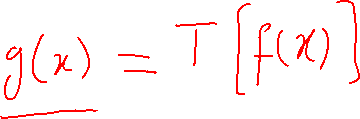 g(x) = T[f(x)]